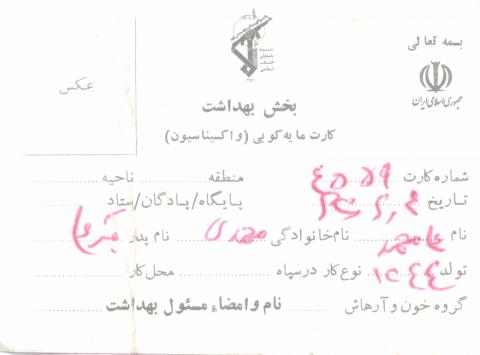 بسمه تعالی
جمهوری اسلامی ایران
سپاه پاسداران انقلاب اسلامی
عکس
بخش بهداشت
کارت مایه کوبی (واکسیناسیون)
شماره کارت ٤٥٥٩ منطقه ناحیه
تاریخ پایگاه/پادگان/ستاد
نام نام خانوادگی محمدی نام پدر
تولد ١٣٤٤ نوع کار در سپاه محل کار
گروه خون و آرهاش نام و امضاء مسئول بهداشت